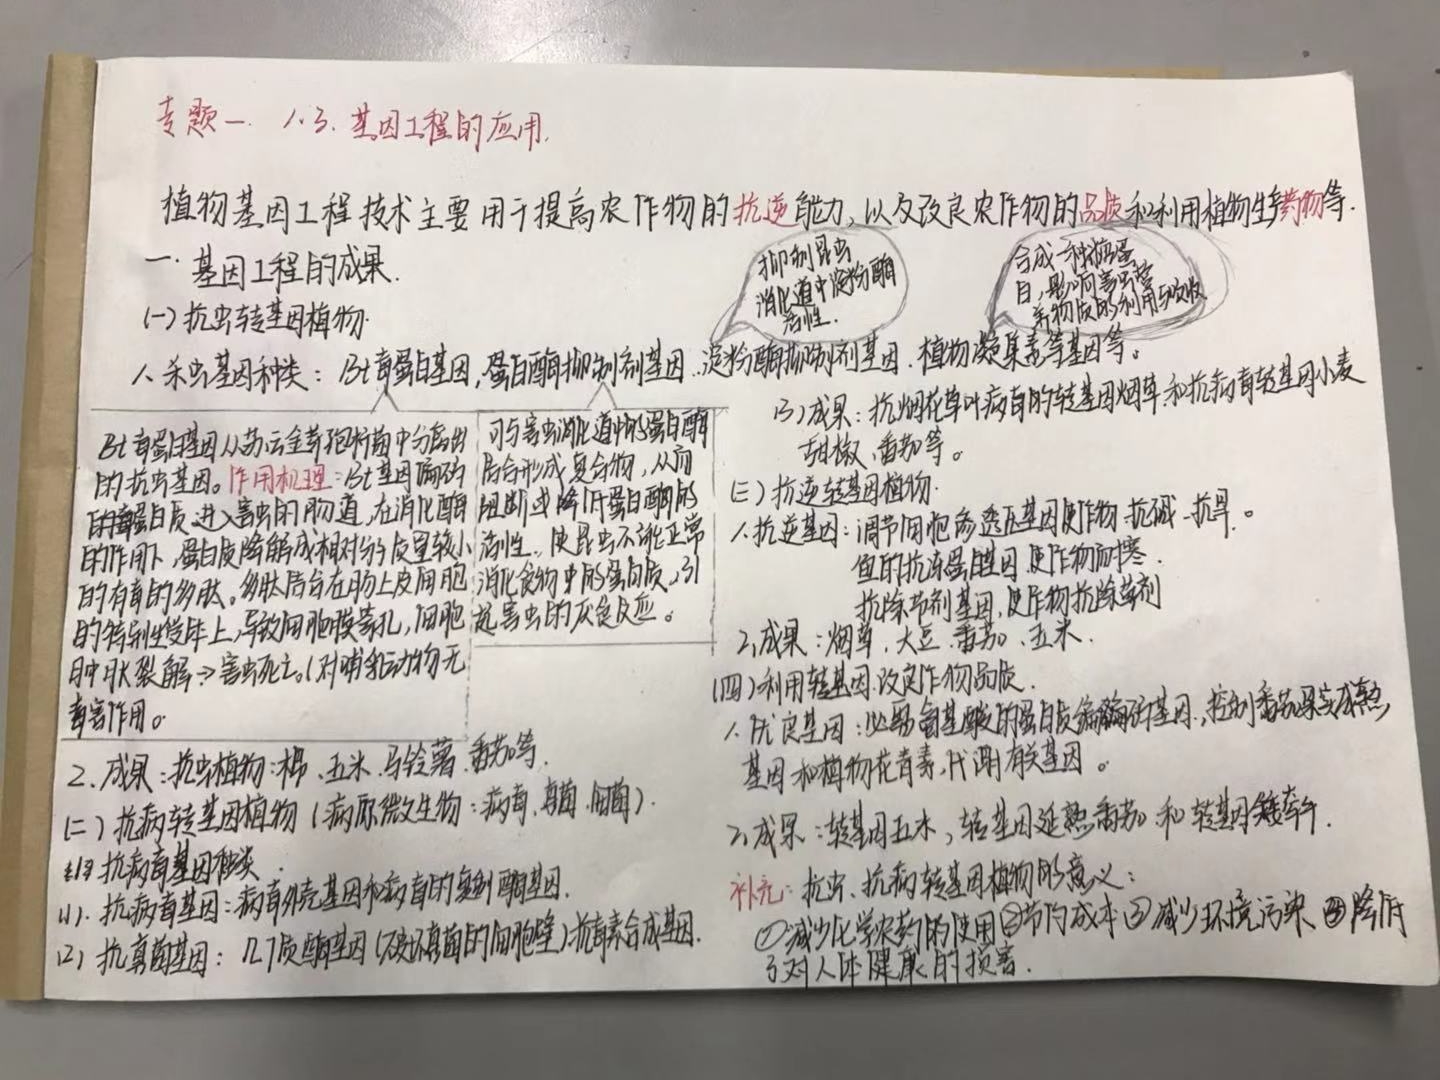 专题一. 1.3. 基因工程的应用.
植物基因工程技术主要用于提高农作物的抗逆能力、以及改良农作物的品质和利用植物生产药物等.
一. 基因工程的成果.
(一) 抗虫转基因植物.
抑制昆虫
消化道中淀粉酶
活性.
合成一种糖蛋
白,影响害虫营
养物质的利用与吸收
1、杀虫基因种类: Bt毒蛋白基因,蛋白酶抑制剂基因、淀粉酶抑制剂基因、植物凝集素等基因等。
Bt毒蛋白基因从苏云金芽孢杆菌中分离出
的抗虫基因。作用机理:Bt基因编码
的毒蛋白质进入害虫的肠道,在消化酶
的作用下,蛋白质降解成相对分子质量较小
的有毒的多肽。多肽结合在肠上皮细胞
的特别性受体上,导致细胞膜穿孔,细胞
肿胀裂解→害虫死亡。(对哺乳动物无
毒害作用。
可与害虫消化道中的蛋白酶
结合形成复合物,从而
阻断或降低蛋白酶的
活性., 使昆虫不能正常
消化食物中的蛋白质,引
起害虫的厌食反应。
2. 成果:抗虫植物:棉、玉米、马铃薯、番茄等.
(二) 抗病转基因植物 (病原微生物:病毒、真菌、细菌).
抗病毒基因种类.
(1). 抗病毒基因:病毒外壳基因和病毒的复制酶基因.
(2) 抗真菌基因: 几丁质酶基因 (破坏真菌的细胞壁) 抗毒素合成基因.
(3) 成果: 抗烟花草叶病毒的转基因烟草和抗病毒转基因小麦
胡椒、番茄等。
(三) 抗逆转基因植物.
1、抗逆基因: 调节细胞渗透压基因使作物抗碱、抗旱。
鱼的抗冻蛋白基因使作物耐寒.
抗除草剂基因,使作物抗除草剂
2、成果:烟草、大豆、番茄、玉米.
(四) 利用转基因改良作物品质.
1、优良基因:必需氨基酸的蛋白质编码基因、控制番茄果实成熟
基因和植物花青素,代谢有关基因。
2、成果:转基因玉米,转基因延熟番茄和转基因矮牵牛.
补充: 抗虫、抗病转基因植物的意义:
①减少化学农药的使用②节约成本③减少环境污染④降低
了对人体健康的损害.